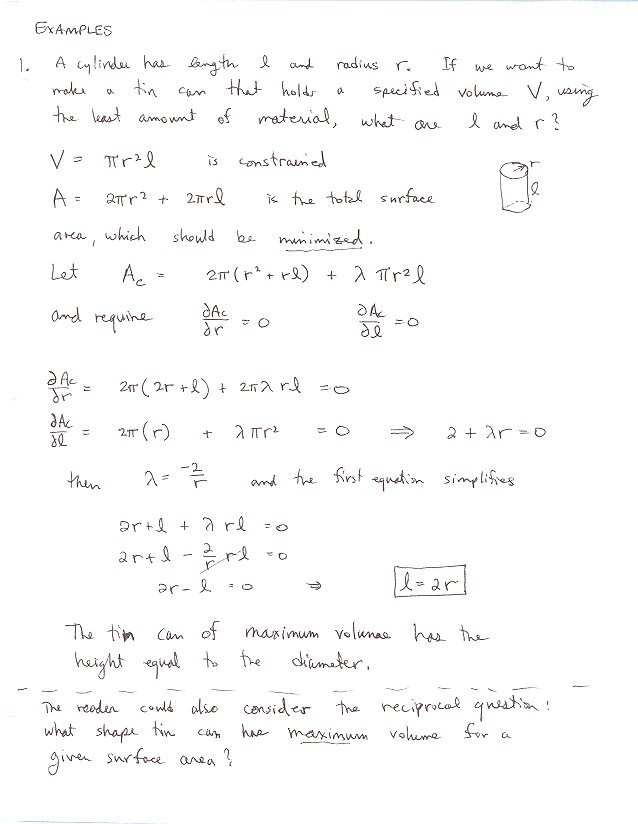 EXAMPLES
1. A cylinder has length l and radius r. If we want to
make a tin can that holds a specified volume V, using
the least amount of material, what are l and r?
V = πr²l is constrained
r
A = 2πr² + 2πrl is the total surface
l
area, which should be minimized.
Let A_c = 2π(r² + rl) + λ πr²l
and require ∂A_c/∂r = 0 ∂A_c/∂l = 0
∂A_c/∂r = 2π(2r + l) + 2πλ rl = 0
∂A_c/∂l = 2π(r) + λπr² = 0 ⇒ 2 + λr = 0
then λ = -2/r and the first equation simplifies
2r + l + λ rl = 0
2r + l - 2/r rl = 0
2r - l = 0 ⇒ l = 2r
The tin can of maximum volume has the
height equal to the diameter.
The reader could also consider the reciprocal question:
what shape tin can has maximum volume for a
given surface area?